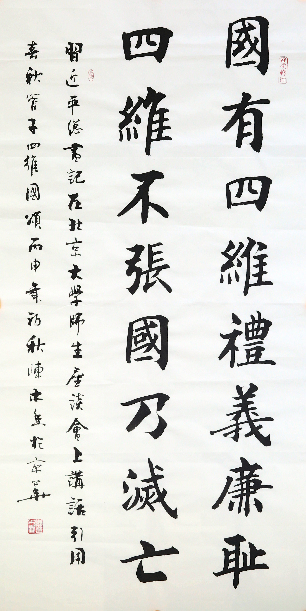 國有四維禮義廉恥
四維不張國乃滅亡
習近平總書記在北京大學師生座談會上講話引用
春秋管子四維國頌丙申年初秋陳於京華